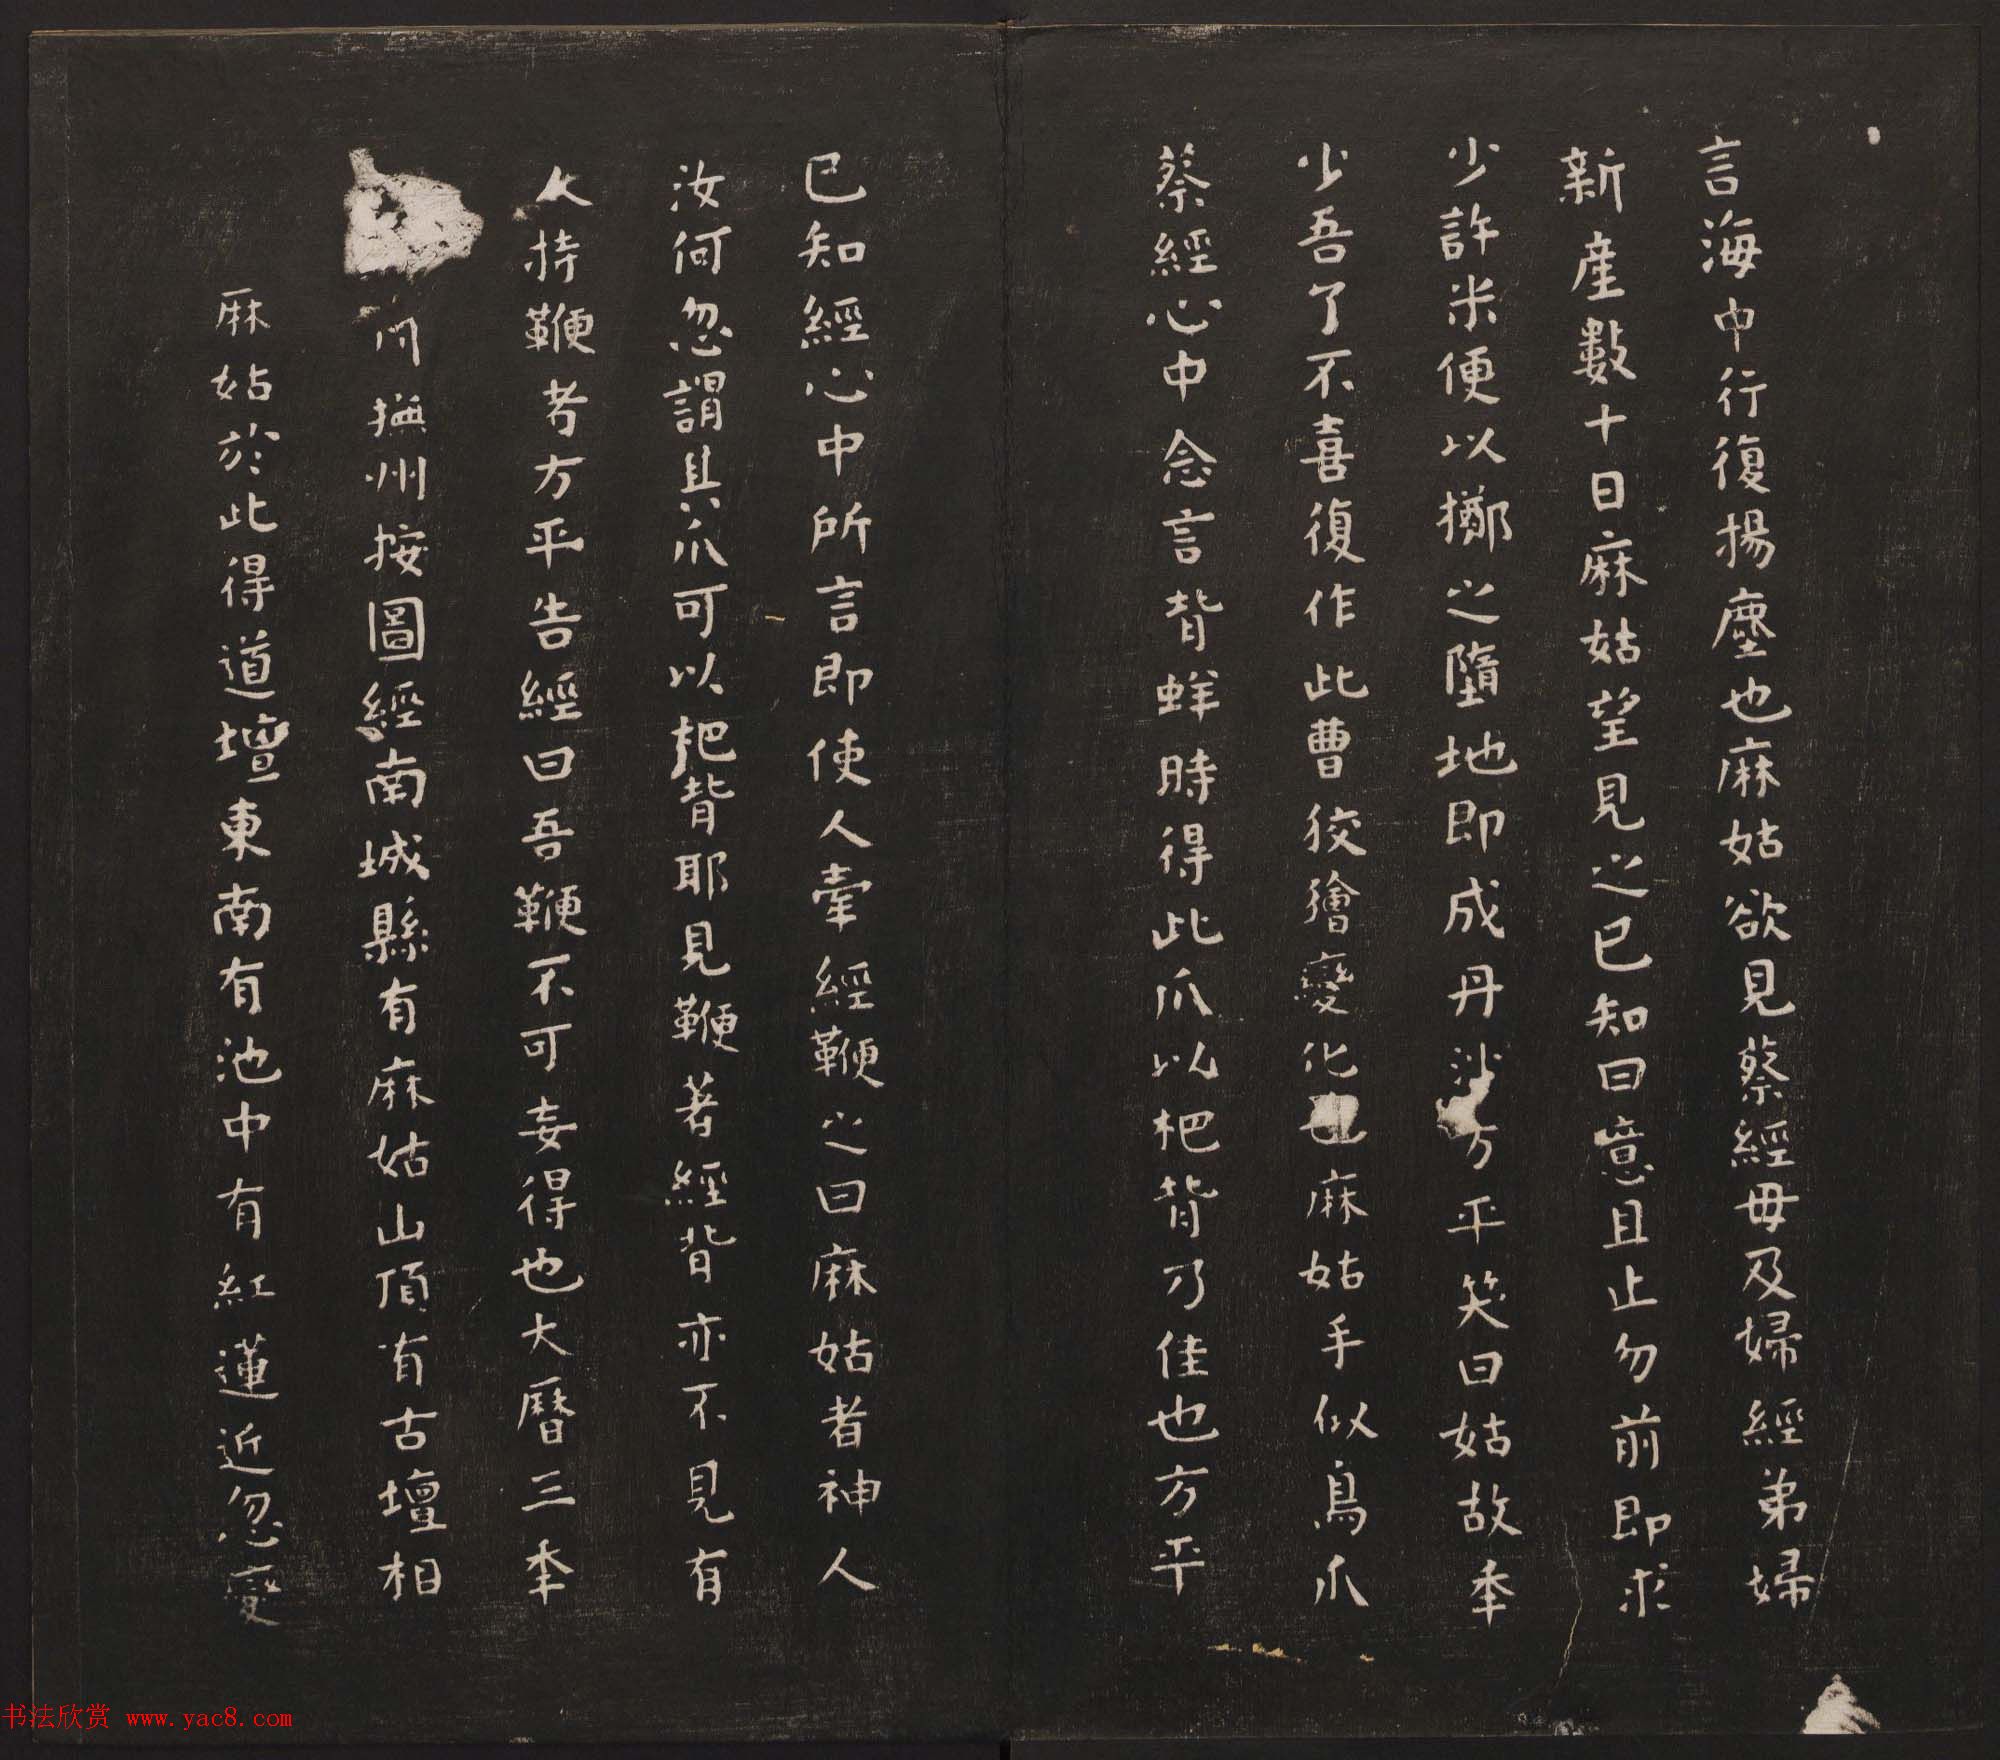 言海中行復揚塵也麻姑欲見蔡經母及婦經弟婦
新產數十日麻姑望見之已知曰噫且止勿前即求
少許米便以擲之墮地即成丹沙方平笑曰姑故年
少吾了不喜復作此曹狡獪變化也麻姑手似鳥爪
蔡經心中念言背蛘時得此爪以杷背乃佳也方平
已知經心中所言即使人牽經鞭之曰麻姑者神人
汝何忽謂其爪可以杷背耶見鞭著經背亦不見有
人持鞭者方平告經曰吾鞭不可妄得也大曆三年
撫州按圖經南城縣有麻姑山頂有古壇相
麻姑於此得道壇東南有池中有紅蓮近忽變
书法欣赏 www.yac8.com